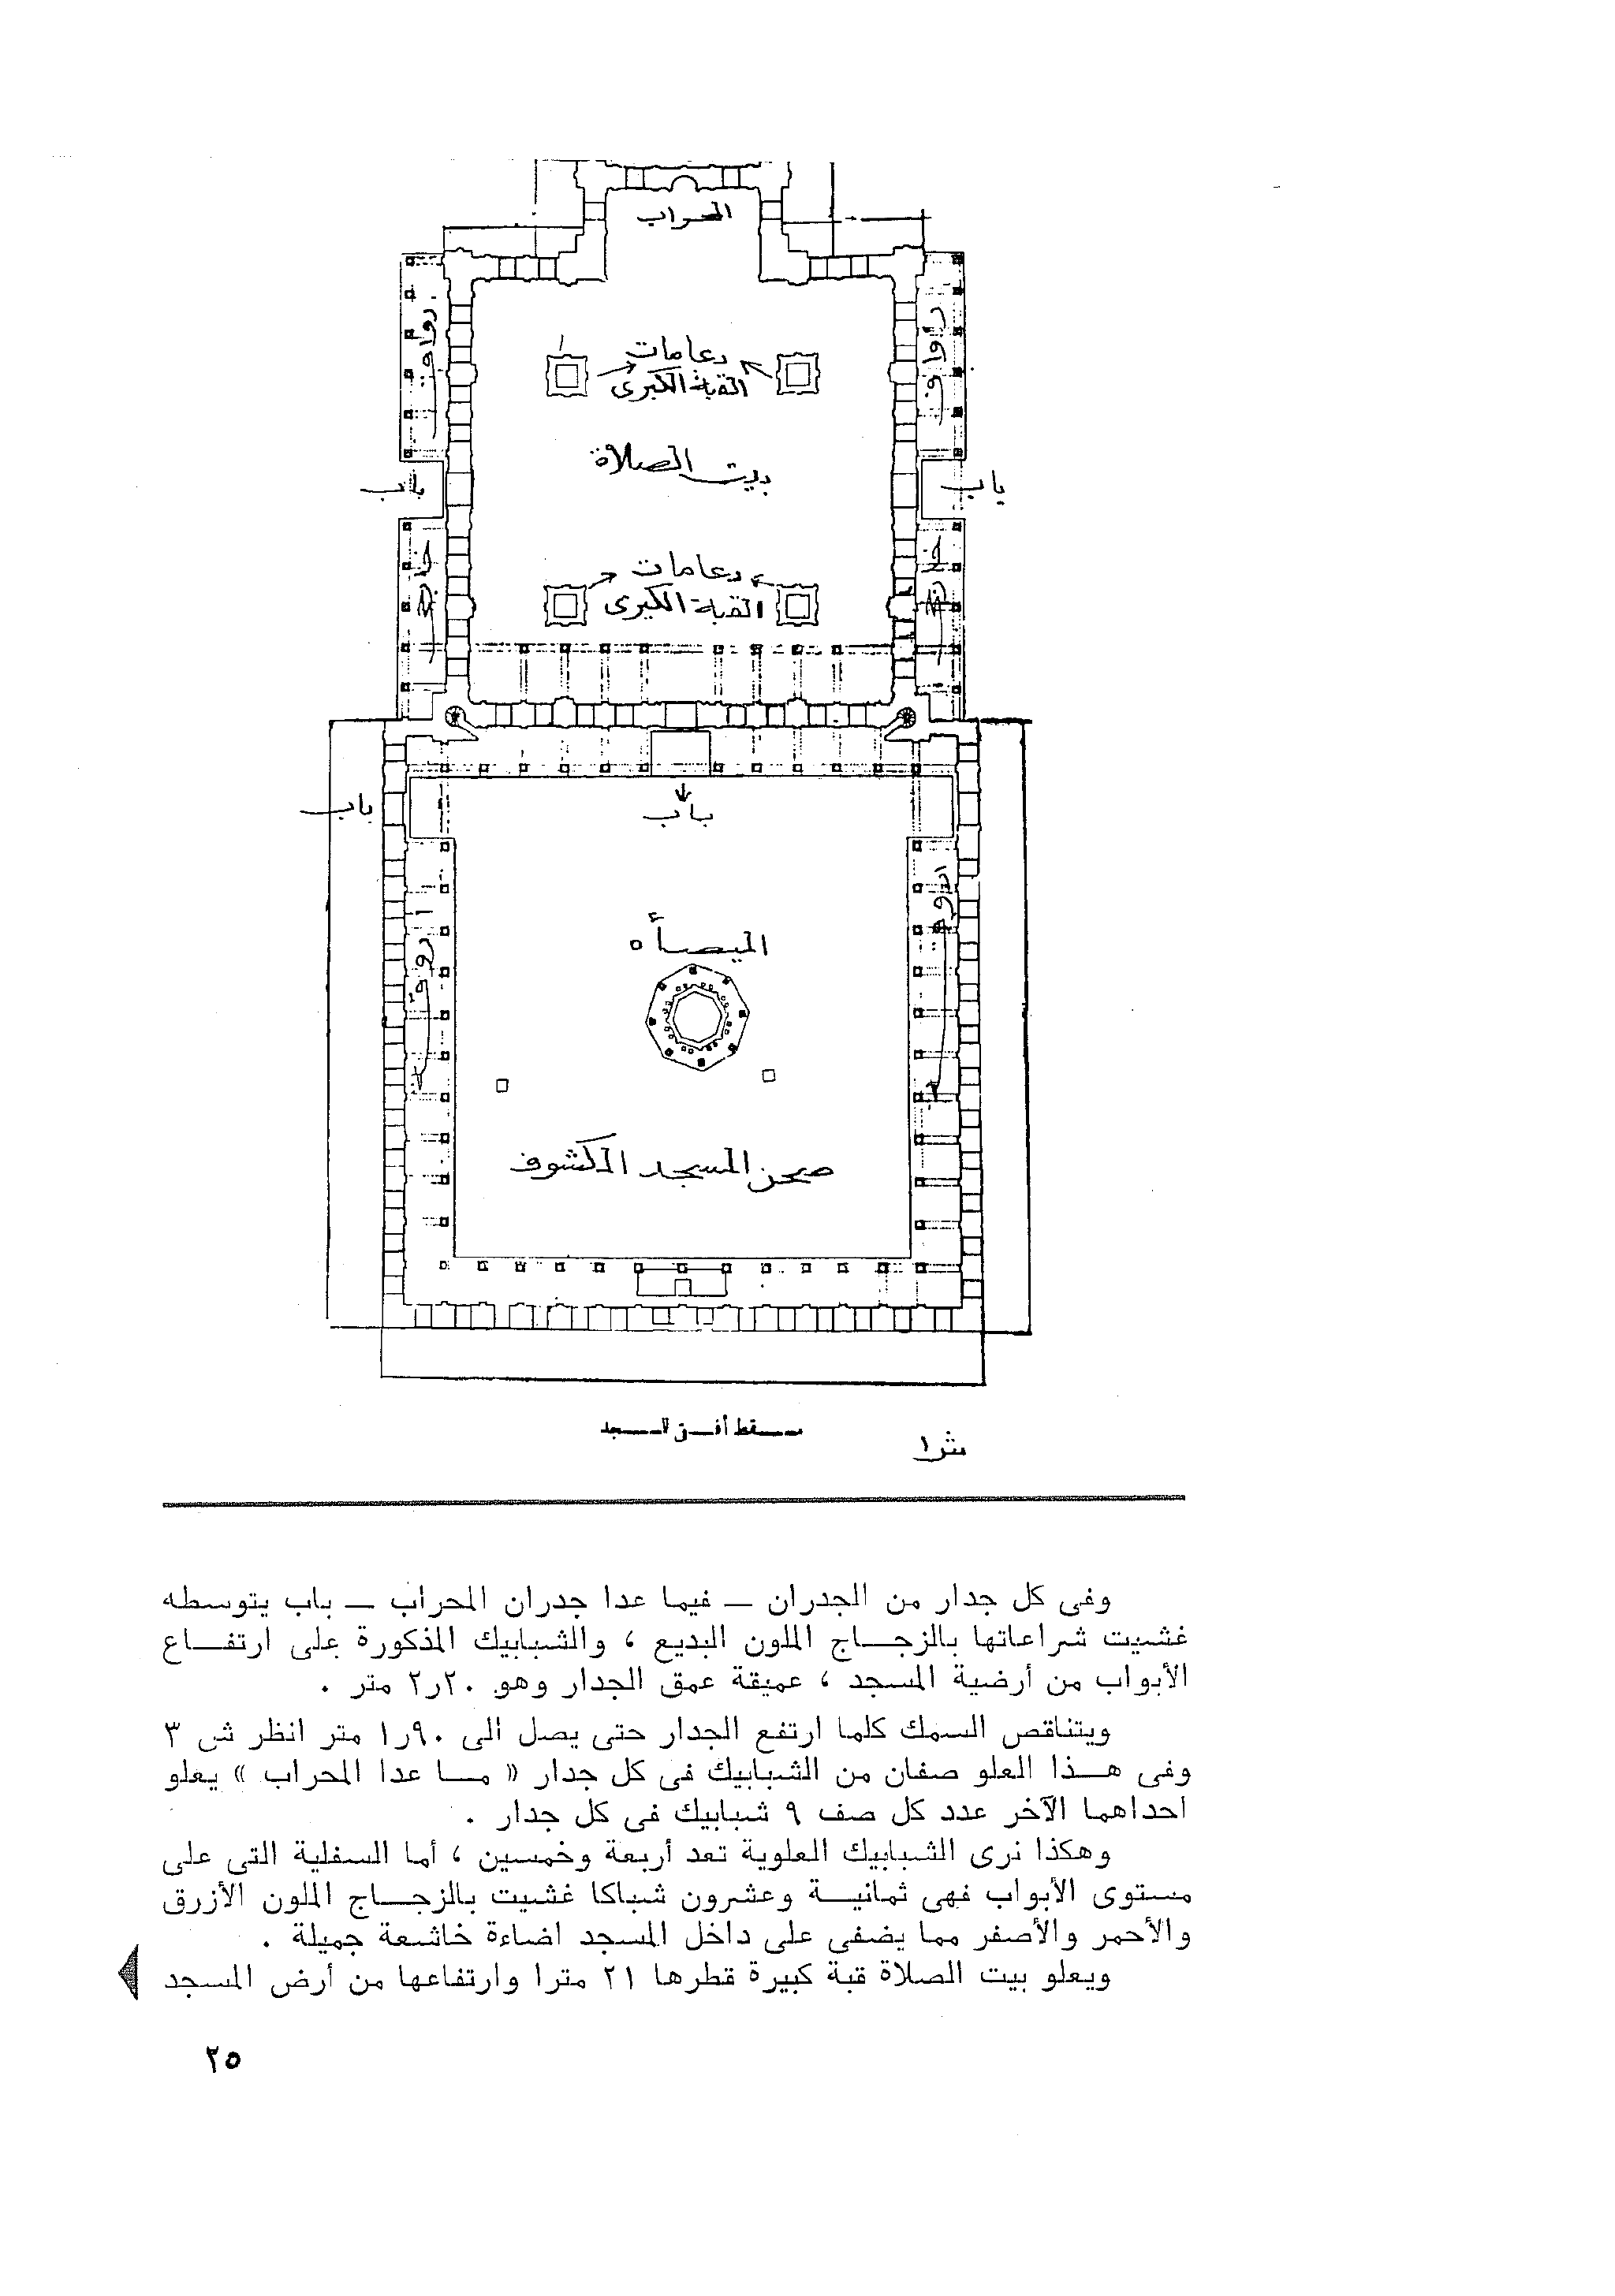 المحراب
دعامات
القبة الكبرى
رواق
رواق
بيت الصلاة
باب
باب
دعامات
القبلة الكبرى
خارجى
خارجى
باب
باب
أروقة
أروقة
الميصأه
صحن المسجد المكشوف
مسقط أفقى للمسجد
ش١
وفى كل جدار من الجدران — فيما عدا جدران المحراب — باب يتوسطه
غشيت شراعاتها بالزجاج الملون البديع ، والشبابيك المذكورة على ارتفاع
الأبواب من أرضية المسجد ، عميقة عمق الجدار وهو ٢٫٢٠ متر .
ويتناقص السمك كلما ارتفع الجدار حتى يصل الى ١٫٩٠ متر انظر ش ٣
وفى هذا العلو صفان من الشبابيك فى كل جدار « ما عدا المحراب » يعلو
احداهما الآخر عدد كل صف ٩ شبابيك فى كل جدار .
وهكذا نرى الشبابيك العلوية تعد أربعة وخمسين ، أما السفلية التى على
مستوى الأبواب فهى ثمانية وعشرون شباكا غشيت بالزجاج الملون الأزرق
والأحمر والأصفر مما يضفى على داخل المسجد اضاءة خاشعة جميلة .
ويعلو بيت الصلاة قبة كبيرة قطرها ٢١ مترا وارتفاعها من أرض المسجد
٢٥